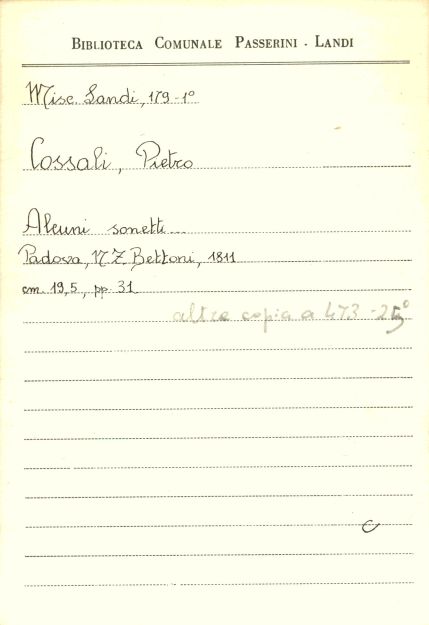 BIBLIOTECA COMUNALE PASSERINI - LANDI
Misc. Landi, 179-1°
Cossali, Pietro
Alcuni sonetti...
Padova, N. Z. Bettoni, 1811
cm. 19,5, pp. 31
altra copia a 473-25°
C